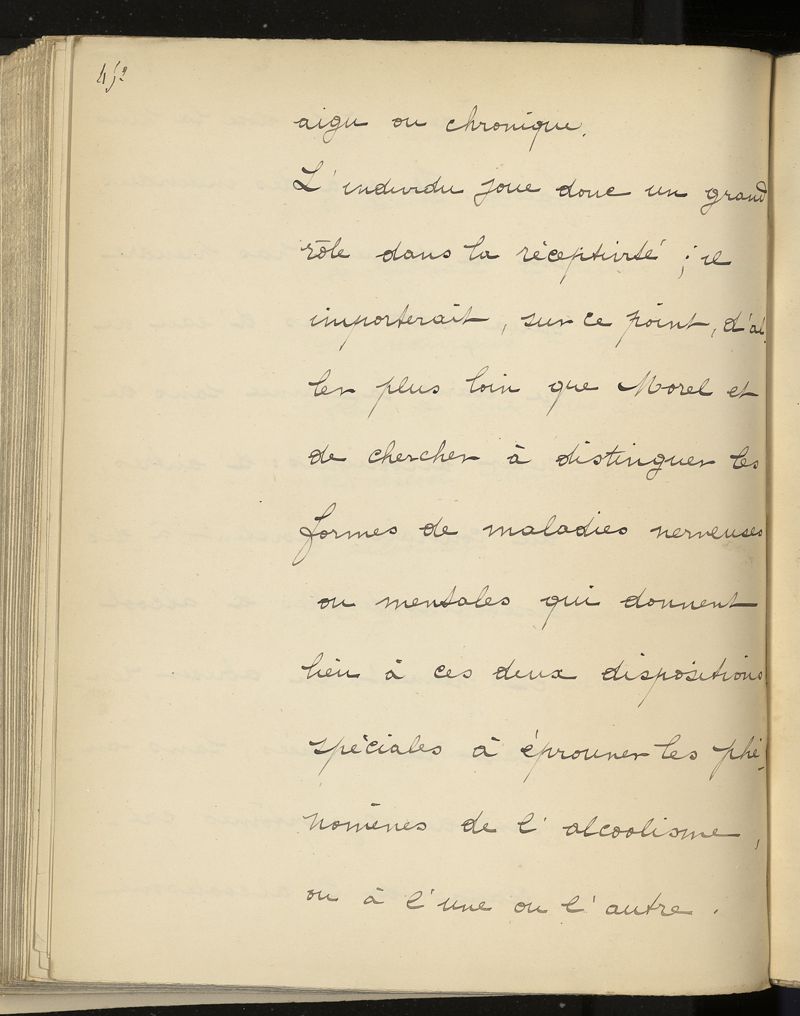 aigu ou chronique.
L'individu joue donc un grand
rôle dans la réceptivité ; il
importerait, sur ce point, d'al-
ler plus loin que Morel et
de chercher à distinguer les
formes de maladies nerveuses
ou mentales qui donnent
lieu à ces deux dispositions
spéciales à éprouver les phé-
nomènes de l'alcoolisme,
ou à l'une ou l'autre.